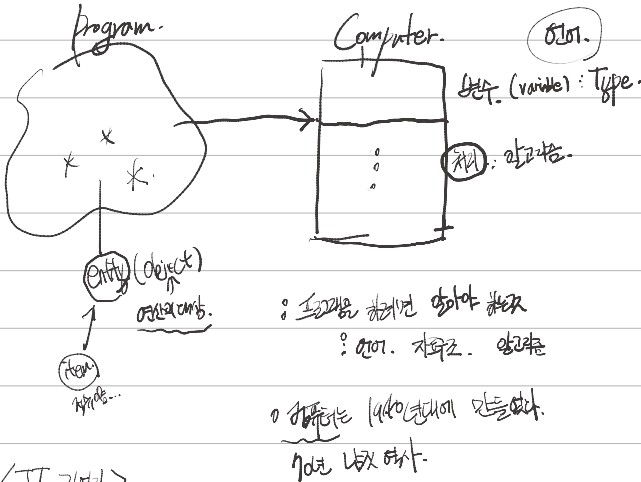 Program.
Computer.
언어.
변수. (variable) : Type.
처리 : 알고리즘.
entity (object)
연산의 대상.
item.
: 프로그램을 하려면 알아야 하는것
: 언어. 자료구조. 알고리즘
컴퓨터는 1940년대에 만들었다.
70년 남짓 역사.